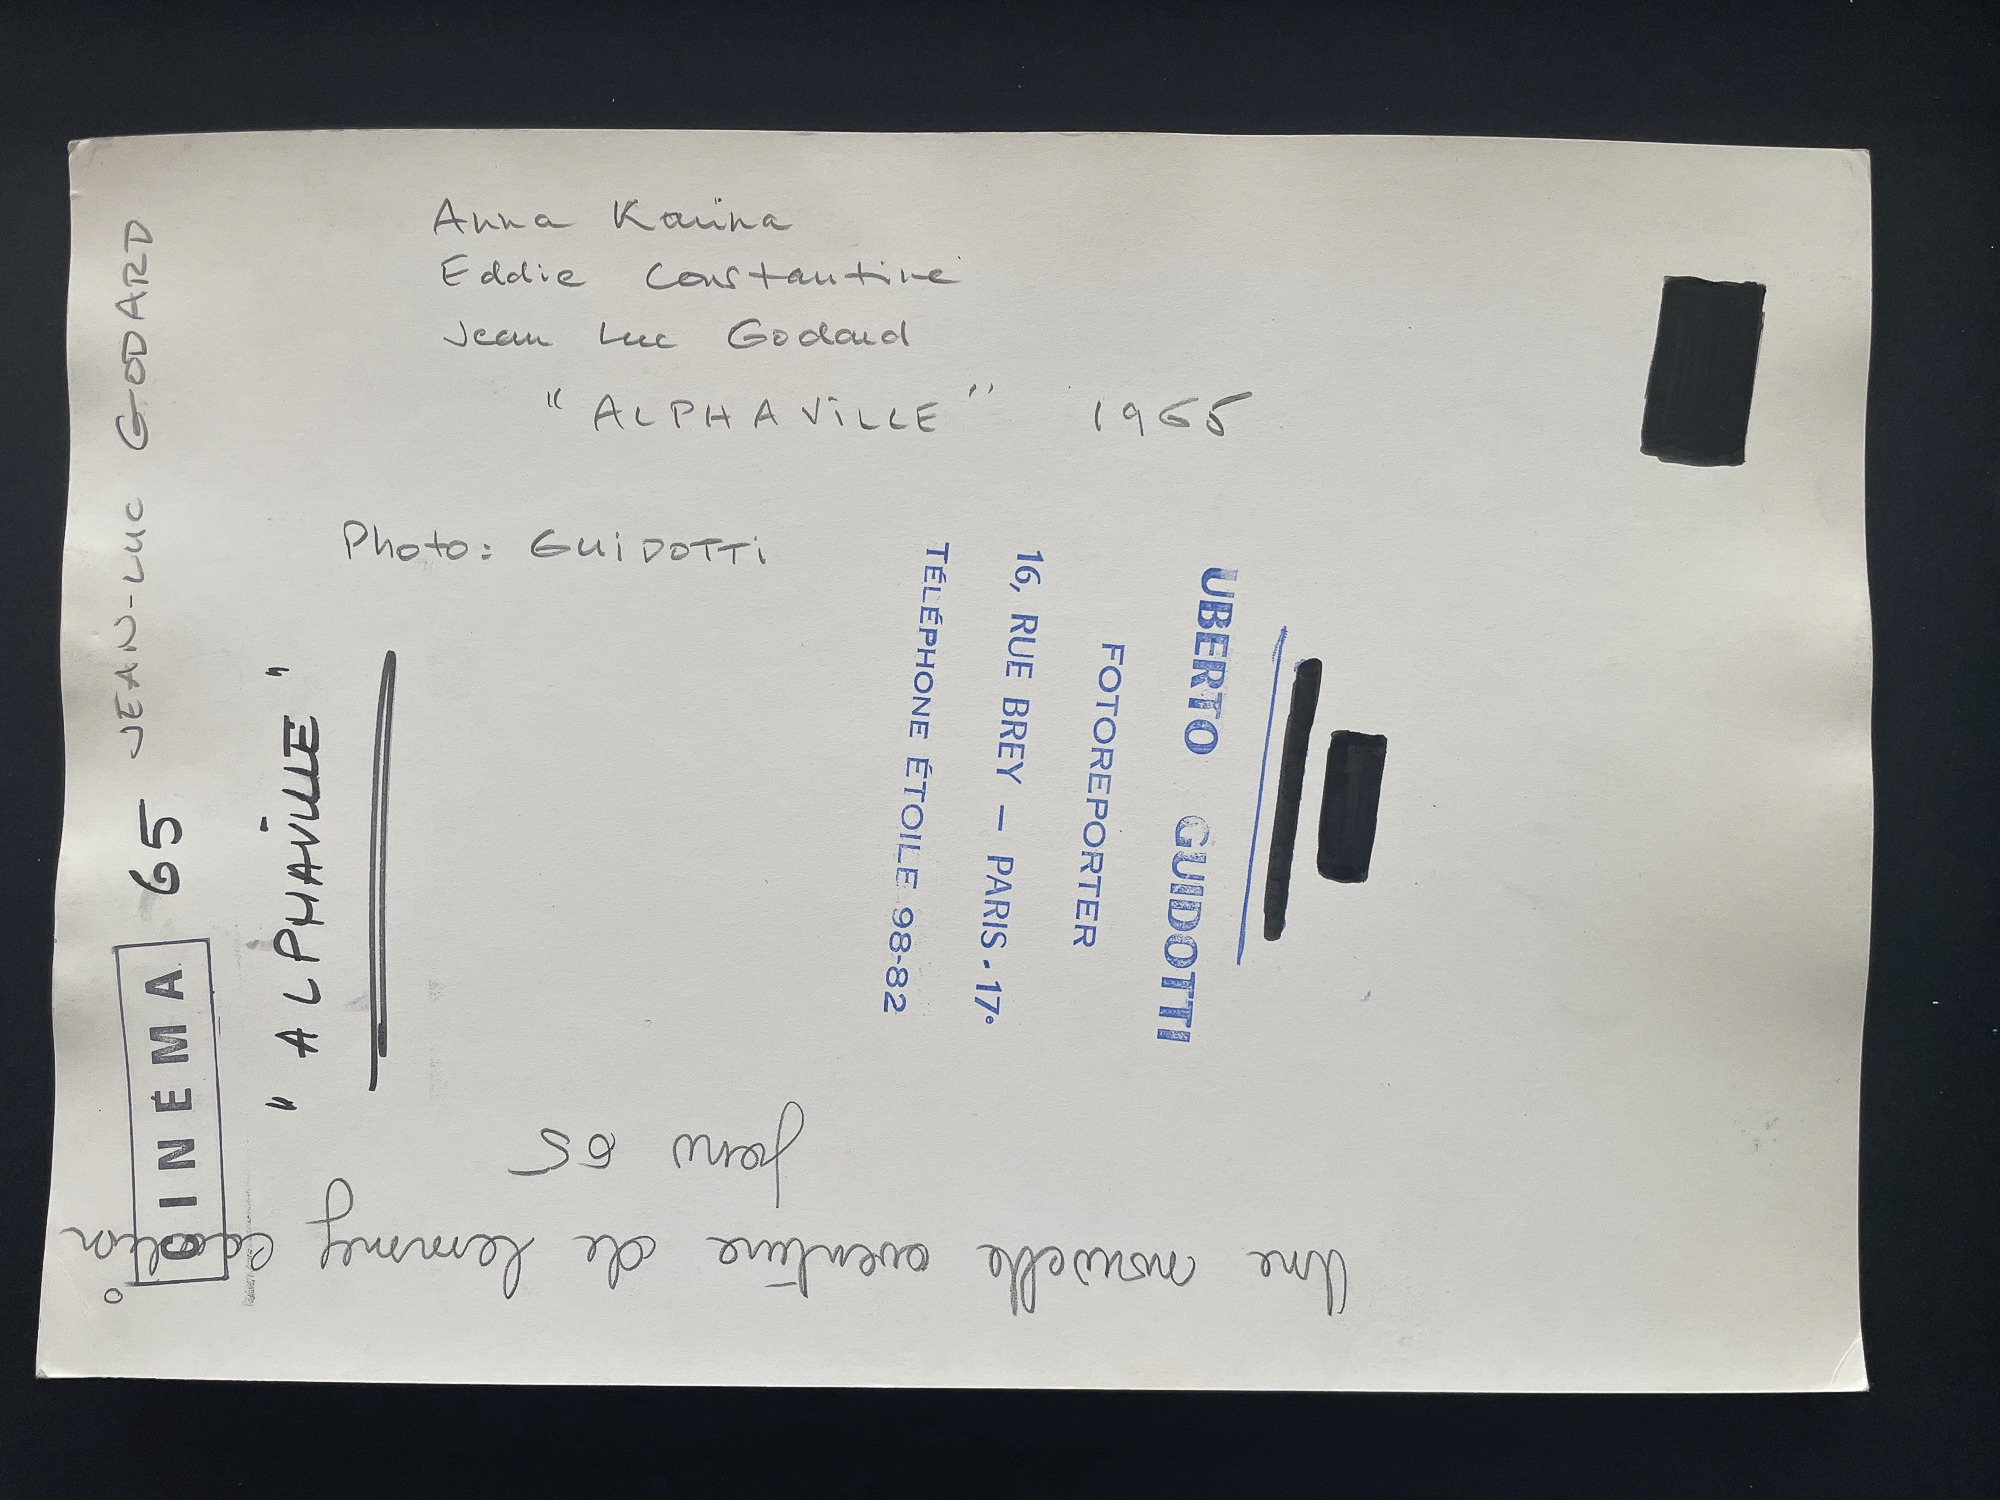 Anna Karina
Eddie Constantine
Jean Luc Godard
"ALPHAVILLE" 1965
Photo: GUIDOTTI
JEAN-LUC GODARD
CINEMA 65
"ALPHAVILLE"
UBERTO GUIDOTTI
FOTOREPORTER
16, RUE BREY — PARIS - 17e
TÉLÉPHONE ÉTOILE 98-82
Une nouvelle aventure de Lemmy
65